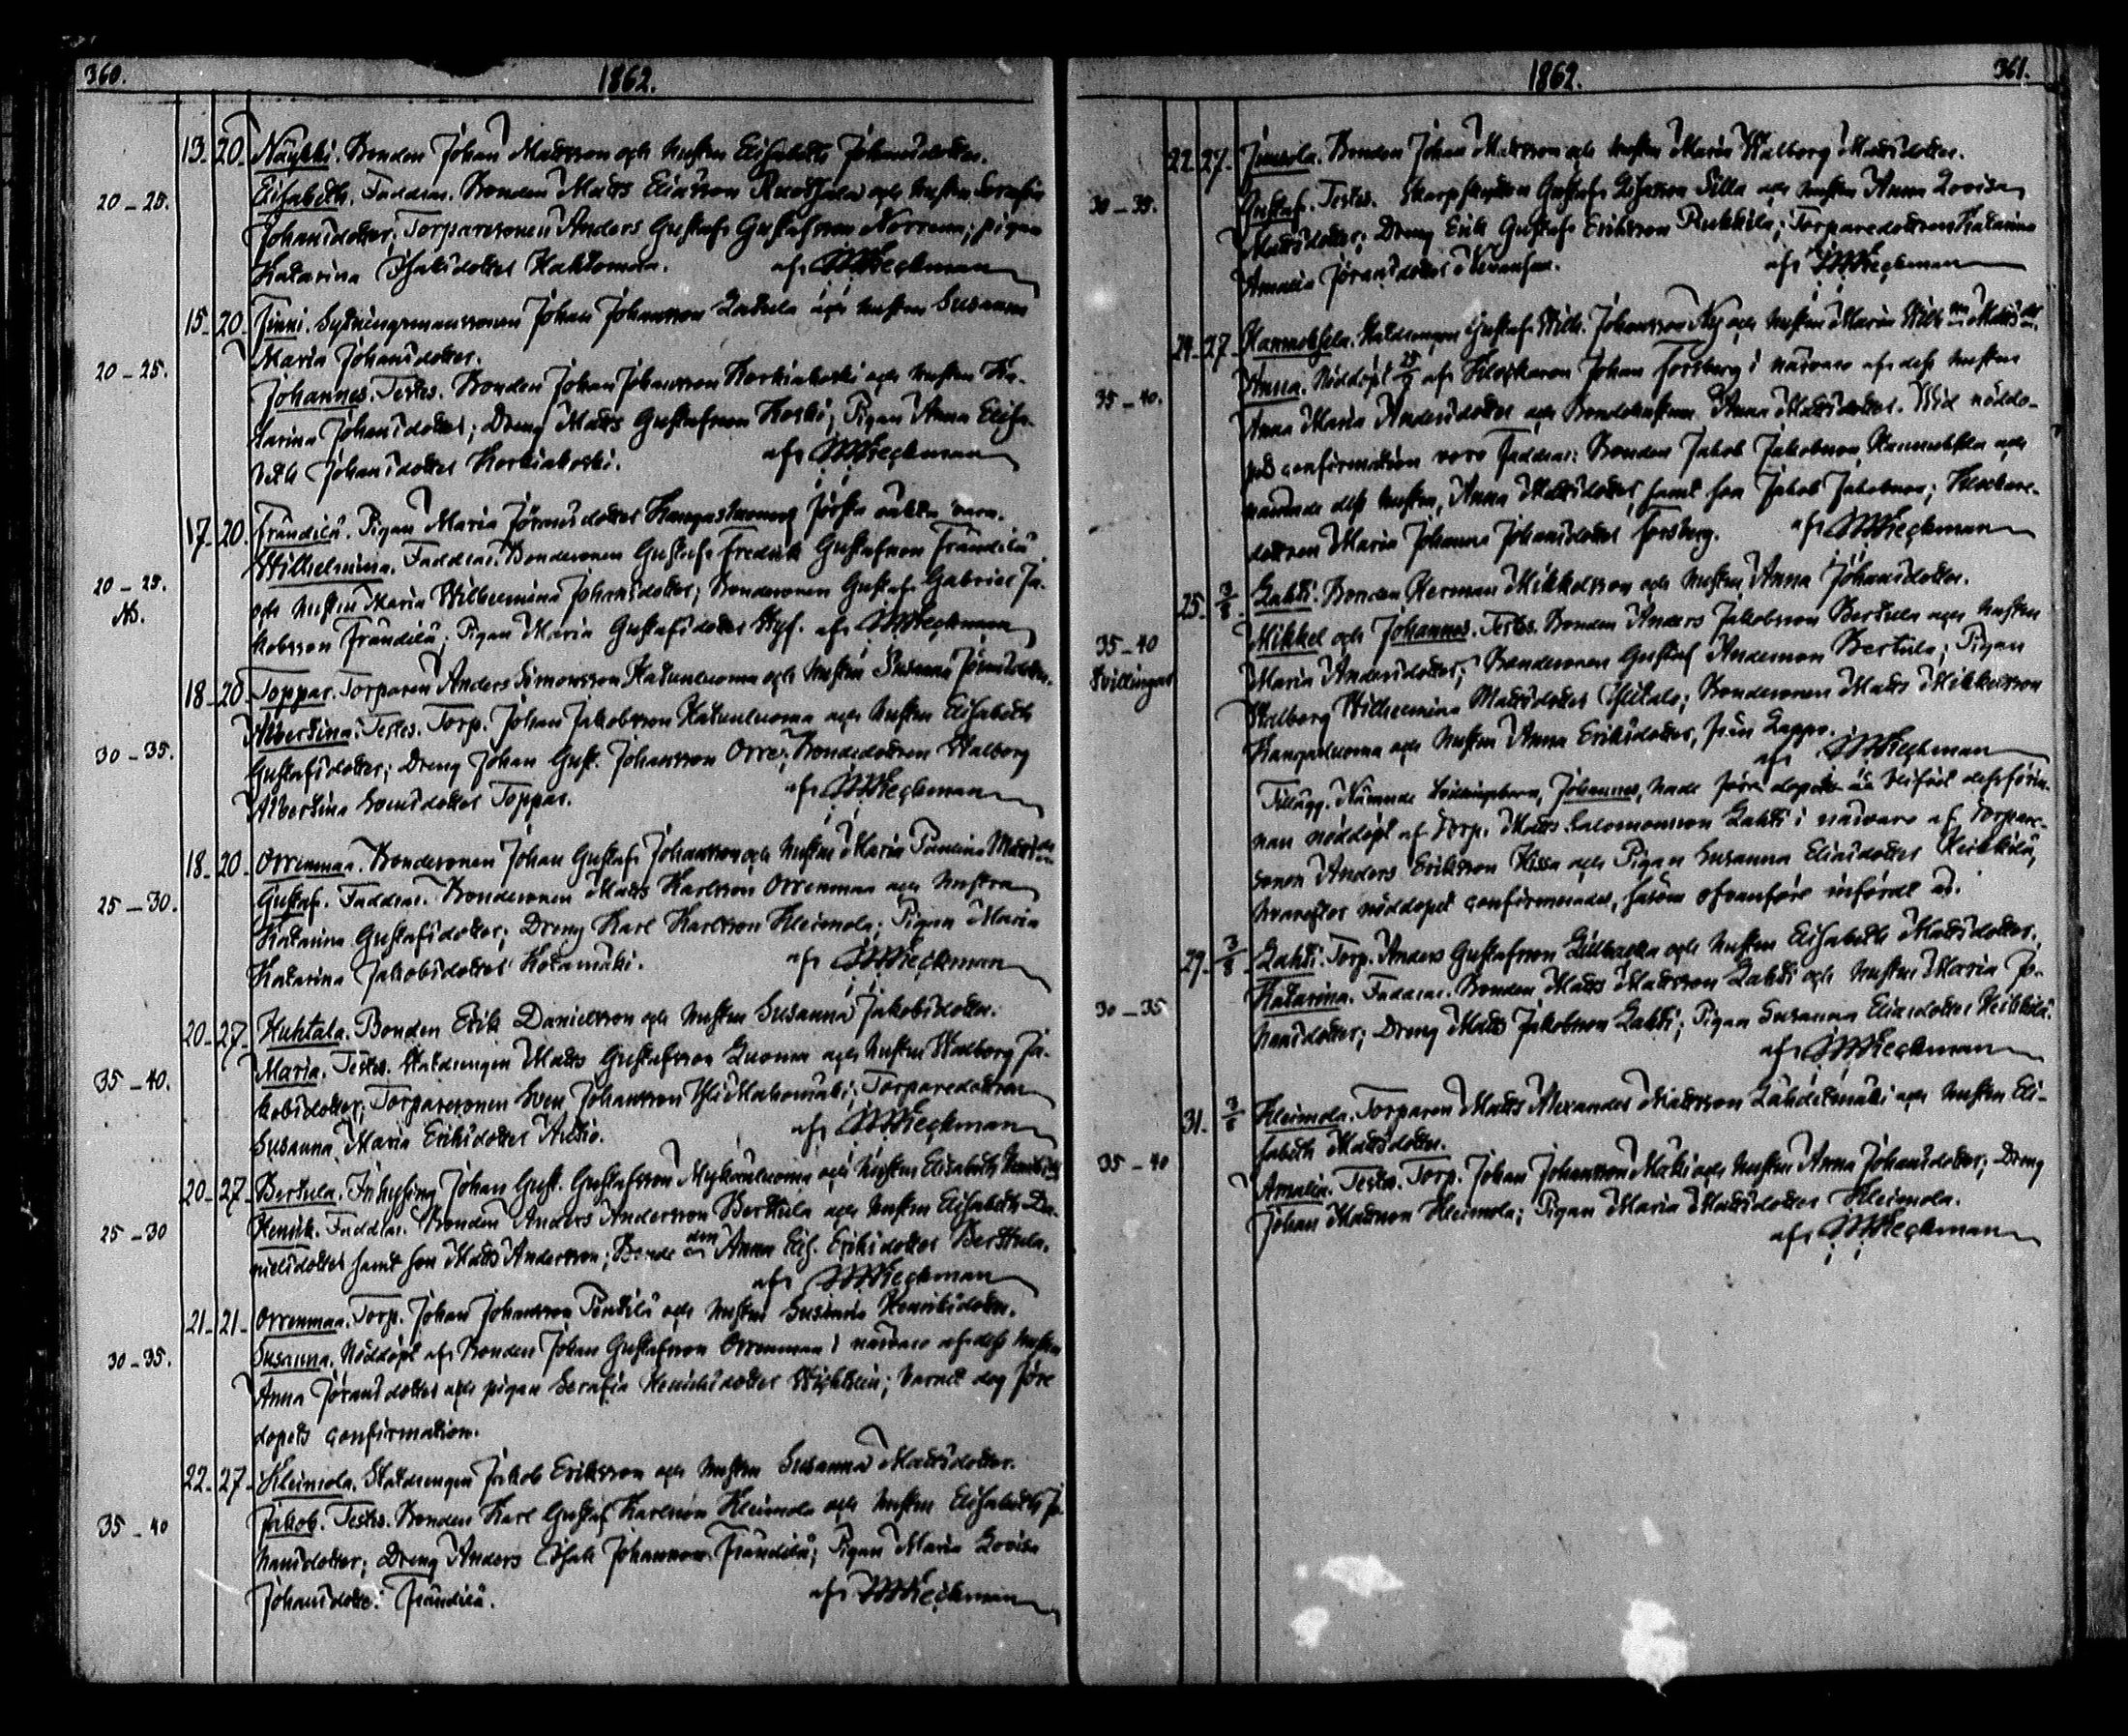 360.
1862.
13. 20. Näykki. Bonden Johan Mattsson och hustru Elisabeth Johansdotter.
20-25. Elisabeth. Faddrar. Bonden Matts Eliasson och hustru Serafia
Johansdotter; Torparesonen Anders Gustaf Gustafsson Norrena; pigan
Katarina Isaksdotter Kaktomaa. af WHeckman
15. 20. Finni. Sytningsmanssonen Johan Johansson Latula och hustru Susanna
Maria Johansdotter.
20-25. Johannes. Testes. Bonden Johan Johansson Korkiakoski och hustru Ka-
tarina Johansdotter; Dreng Matts Gustafsson Koski; Pigan Anna Elisa-
beth Johansdotter Korkiakoski. af WHeckman
17. 20. Frändilä. Pigan Maria Jöransdotter Första äkta barn.
20-25. Wilhelmina. Faddrar. Bondesonen Gustaf Fredrik Gustafsson Frändilä
No. och hustru Maria Wilhelmina Johansdotter; Bondesonen Gustaf Gabriel Ja-
kobsson Frändilä; Pigan Maria Gustafsdotter af WHeckman
18. 20. Toppar. Torparen Anders Simonsson Katunluoma och hustru Susanna Jöransdotter.
Albertina. Testes. Torp. Johan Jakobsson Katunluoma och hustru Elisabeth
30-35. Gustafsdotter; Dreng Johan Gust. Johansson Orre; Bondedottren Walborg
Albertina Svensdotter Toppar. af WHeckman
18. 20. Orrenmaa. Bondesonen Johan Gustaf Johansson och hustru Maria Paulina Matts dr
25-30. Gustaf. Faddrar. Bondesonen Matts Karlsson Orrenmaa och hustru
Katarina Gustafsdotter; Dreng Karl Karlsson Kleimola; Pigan Maria
Katarina Jakobsdotter Kotamäki. af WHeckman
20. 27. Huhtala. Bonden Erik Danielsson och hustru Susanna Jakobsdotter.
Maria. Testes. Statdrengen Matts Gustafsson Luoma och hustru Walborg Ja-
35-40. kobsdotter; Torparesonen Sven Johansson Torparedottren
Susanna Maria Eriksdotter Autio. af WHeckman
20. 27. Bertula. Inhysing Johan Gust. Gustafsson och hustru Elisabeth
25-30 Henrik. Faddrar. Bonden Anders Andersson Bertula och hustru Elisabeth Da-
nielsdotter samt son Matts Andersson; Bonde don Anna Elis. Eriksdotter Bertula.
af WHeckman
21. 21. Orrenmaa. Torp. Johan Johansson Pentilä och hustru Susanna Henriksdotter.
30-35. Susanna. Nöddöpt af Bonden Johan Gustafsson Orrenmaa i närvaro af dess hustru
Anna Jöransdotter och pigan Serafia Henriksdotter; barnet dog före
dopets confirmation.
22. 27. Kleimola. Statdrengen Jakob Eriksson och hustru Susanna Mattsdotter.
35-40 Jakob. Testes. Bonden Karl Gustaf Karlsson Kleimola och hustru Elisabeth Jo-
hansdotter; Dreng Anders Isak Johansson Frändilä; Pigan Maria Lovisa
Johansdotter Frändilä. af WHeckman
1862.
361.
22. 27. Jussola. Bonden Johan Mattsson och hustru Maria Walborg Mattsdotter.
30-35. Gustaf. Testes. Skarpskytten Gustaf Silla och hustru Anna Lovisa
Mattsdotter; Dreng Erik Gustaf Eriksson; Torparedottren Katarina
Amalia Jöransdotter. af WHeckman
24. 27. Hannuksela. Statdrengen Gustaf Wilh. Johansson och hustru Maria Wilh na Matts dr
35-40. Anna. Nöddöpt 25/7 af Klockaren Johan Forsberg i närvaro af dess hustru
Anna Maria Andersdotter och Bondehustrun Anna Mattsdotter. Wid nöddo-
pets confirmation voro Faddrar: Bonden Jakob Jakobsson Hannuksela och
nämnde dess hustru, Anna Mattsdotter, samt son Jakob Jakobsson; Klockare-
dottren Maria Johanna Johansdotter Forsberg. af WHeckman
25. 3/8 Lahti. Bonden Herman Mikkelsson och hustru Anna Johansdotter.
35-40 Mikkel och Johannes. Testes. Bonden Anders Jakobsson Bertula och hustru
Tvillingar Maria Andersdotter; Bondesonen Gustaf Andersson Bertula; Pigan
Walborg Wilhelmina Mattsdotter; Bondesonen Matts Mikkelsson
Kangasluoma och hustru Anna Eriksdotter, från Lappo.
af WHeckman
Tillägg. Nämnde tvillingbarn, Johannes, hade före dopets blifvit dessförin-
nan nöddöpt af Torp. Matts Salomonsson Lahti i närvaro af Torpare-
sonen Anders Eriksson Kissa och Pigan Susanna Eliasdotter Heikkilä,
hvarefter nöddopet confirmerades, såsom ofvanföre infördt är.
29. 3/8 Lahti. Torp. Anders Gustafsson Lillbacka och hustru Elisabeth Mattsdotter.
30-35 Katarina. Faddrar. Bonden Matts Mattsson Lahti och hustru Maria Jo-
hansdotter; Dreng Matts Jakobsson Lahti; Pigan Susanna Eliasdotter Heikkilä.
af WHeckman
31. 3/8 Kleimola. Torparen Matts Alexander Mattsson Lähdetmäki och hustru Eli-
sabeth Mattsdotter.
35-40 Amalia. Testes. Torp. Johan Johansson Mäki och hustru Anna Johansdotter; Dreng
Johan Mattsson Kleimola; Pigan Maria Mattsdotter Kleimola.
af WHeckman